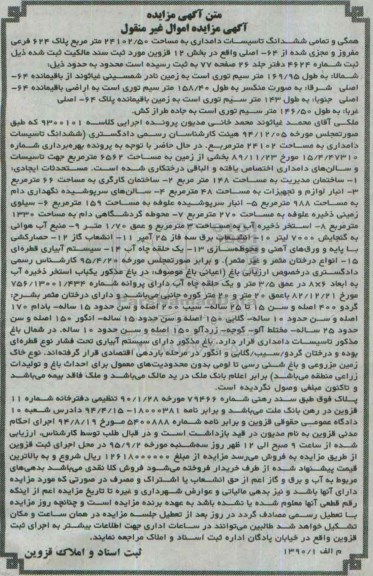 متن آگهی مزایده
آگهی مزایده اموال غیر منقول
همگی و تمامی ششدانگ تاسیسات دامداری به مساحت ۲۴۱۰۲/۵۰ متر مربع پلاک ۶۲۴ فرعی
مفروز و مجزی شده از ۶۴- اصلی واقع در بخش ۱۲ قزوین مورد ثبت سند مالکیت ثبت شده ذیل
ثبت شماره ۴۶۲۴ دفتر جلد ۲۶ صفحه ۷۷ به ثبت رسیده است محدود به حدود ذیل:
شمالا: به طول ۱۶۹/۹۵ متر سیم توری است به زمین نادر شمسینی غیاثوند از باقیمانده ۶۴-
اصلی شرقا: به صورت منکسر به طول ۱۵۸/۴۰ متر سیم توری است به اراضی باقیمانده ۶۴-
اصلی جنوبا: به طول ۱۴۳ متر سیم توری است به زمین باقیمانده پلاک ۶۴- اصلی
غربا: به طول ۱۴۶/۵۰ متر سیم توری است به جاده طراز کش.
ملکی آقای محمد غیاثوند محمد خانی مدیون پرونده اجرایی کلاسه ۹۳۰۰۱۰۱ که طبق
صورتمجلس مورخه ۹۴/۱۲/۰۵ هیئت کارشناسان رسمی دادگستری (ششدانگ تاسیسات
دامداری به مساحت ۲۴۱۰۲ مترمربع. در حال حاضر با توجه به پرونده بهره‌برداری شماره
۱۵/۴/۴۷۳۱۰ مورخ ۸۹/۱۱/۲۳ بخشی از زمین به مساحت ۶۵۶۲ مترمربع جهت تاسیسات
و سالن‌های دامداری اختصاص یافته و الباقی درختکاری شده است. مستحدثات ایجادی:
۱- ساختمان مدیریت به مساحت ۱۴۸ متر مربع ۲- ساختمان کارگری به مساحت ۶۶ مترمربع
۳- انبار لوازم و تجهیزات به مساحت ۴۸ مترمربع ۴- سالن‌های سرپوشیده نگهداری دام
به مساحت ۹۸۸ مترمربع ۵- انبار سرپوشیده علوفه به مساحت ۱۵۹ مترمربع ۶- سیلوی
زمینی ذخیره علوفه به مساحت ۲۷۰ مترمربع ۷- محوطه گردشگاهی دام به مساحت ۱۳۳۰
مترمربع ۸- استخر ذخیره آب به مساحت ۳ مترمربع و عمق ۱/۷۰ متر ۹- منبع آب هوایی
به گنجایش ۷۰۰۰ لیتر ۱۰- انشعاب برق سه فاز ۲۵ آمپر ۱۱- انشعاب گاز ۱۲- حصارکشی
با پایه و ورق‌های آهنی و محوطه‌سازی ۱۳- یک حلقه چاه آب ۱۴- سیستم آبیاری قطره‌ای
۱۵- انواع درختان مثمر و غیر مثمر). و برابر صورتمجلس مورخه ۹۵/۴/۲۰ کارشناس رسمی
دادگستری درخصوص ارزیابی باغ (اعیانی باغ موصوف، در باغ مذکور یکباب استخر ذخیره آب
به ابعاد ۸×۶ در عمق ۳/۵ متر و یک حلقه چاه آب دارای پروانه شماره ۷۵۶/۱۳۰۰۱/۴۴۳
مورخ ۸۲/۱۲/۲۱ باعمق ۲۰ متر و ۲۰ متر کوره جانبی می‌باشد و دارای درختان مثمر بشرح:
گردو ۴۰۰ اصله و سن ۱۵ تا ۲۵ ساله- سیب ۲۰۰ اصله و سن حدود ۱۵ ساله- بادام ۱۷۰
اصله و سن حدود ۱۰ ساله- گلابی ۱۵۰ اصله و سن حدود ۱۵ ساله- انگور ۱۵۰ اصله و سن
حدود ۲۵ ساله- مختلط آلو- گوجه- زردآلو ۱۵۰ اصله و سن حدود ۱۰ ساله. در شمال باغ
مذکور تاسیسات دامداری قرار دارد. باغ مذکور دارای سیستم آبیاری تحت فشار نوع قطره‌ای
بوده و درختان گردو/سیب/گلابی و انگور در مرحله باردهی اقتصادی قرار گرفته‌اند. نوع خاک
زمین مزروعی و باغ شنی رسی تا لومی بدون محدودیت‌های معمول برای احداث باغ و تولیدات
زراعی متعلقه می‌باشد) برابر اعلام بانک ملک در ید مالک می‌باشد و ملک فاقد بیمه می‌باشد
و تاکنون مبلغی وصول نگردیده است.
پلاک فوق طبق سند رهنی شماره ۷۹۴۶۶ مورخه ۹۰/۱/۲۸ تنظیمی دفترخانه شماره ۱۱
قزوین در رهن بانک ملت می‌باشد و برابر نامه ۱۸۰۰۰۳۸۱- ۹۴/۴/۱۵ دادرس شعبه ۱۰
دادگاه عمومی حقوقی قزوین و برابر نامه شماره ۵۴۰۰۸۸۸ مورخ ۹۴/۸/۱۹ اجرای احکام
مدنی قزوین به نام مدیون در قید بازداشت است و در قبال طلب توسط کارشناس، ارزیابی
شده از ساعت ۹ صبح الی ۱۲ ظهر روز سه‌شنبه مورخه ۹۵/۹/۲ در محل اجرای ثبت قزوین
از طریق مزایده به فروش می‌رسد مزایده از مبلغ ۱۲۶۱۸۰۰۰۰۰۰ ریال شروع و به بالاترین
قیمت پیشنهاد شده از طرف خریدار فروخته می‌شود فروش کلا نقدی می‌باشد بدهی‌های
مربوط به آب و برق و گاز اعم از حق انشعاب یا اشتراک و مصرف در صورتی که مورد مزایده
دارای آنها باشد و نیز بدهی مالیاتی و عوارض شهرداری و غیره تا تاریخ مزایده اعم از اینکه
رقم قطعی آنها معلوم شده یا نشده باشد به عهده برنده مزایده است و چنانچه روز مزایده
با تعطیل رسمی مصادف گردد در روز بعد از تعطیل جلسه مزایده در همان ساعت و مکان
تشکیل خواهد شد طالبین می‌توانند در ساعات اداری جهت اطلاعات بیشتر به اجرای ثبت
قزوین واقع در خیابان پادگان اداره ثبت اسناد و املاک مراجعه نمایند.
م الف ۱۳۹۰/۱
ثبت اسناد و املاک قزوین